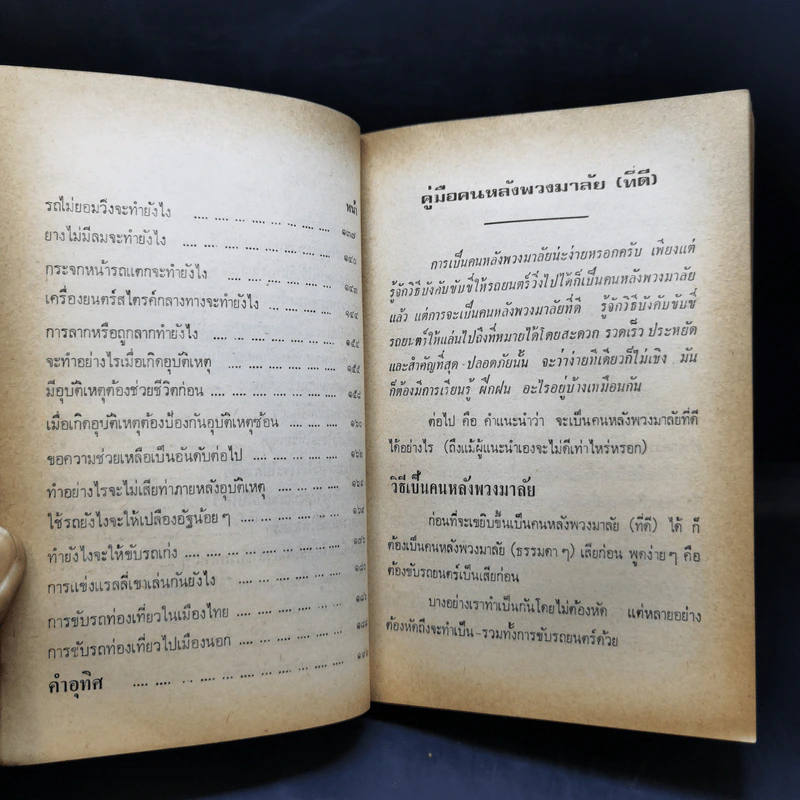 หน้า
รถไม่ยอมวิ่งจะทำยังไง .... ... ... ... ... ๑๓๗
ยางไม่มีลมจะทำยังไง .... ... ... ... ... ๑๔๐
กระจกหน้ารถแตกจะทำยังไง ... ... ... ... ๑๔๓
เครื่องยนตร์สไตรค์กลางทางจะทำยังไง .... ... ... ๑๔๔
การลากหรือถูกลากทำยังไง .... ... ... ... ๑๕๔
จะทำอย่างไรเมื่อเกิดอุบัติเหตุ .... ... ... ... ๑๕๕
มีอุบัติเหตุต้องช่วยชีวิตก่อน .... ... ... ... ๑๕๘
เมื่อเกิดอุบัติเหตุต้องป้องกันอุบัติเหตุซ้อน .... ... ... ๑๖๐
ขอความช่วยเหลือเป็นอันดับต่อไป .... ... ... ...
ทำอย่างไรจะไม่เสียท่าภายหลังอุบัติเหตุ .... ... ... ๑๖๔
ใช้รถยังไงจะให้เปลืองอัฐน้อย ๆ .... ... ... ...
ทำยังไงจะให้ขับรถเก่ง .... ... ... ... ...
การแข่งแรลลี่เขาเล่นกันยังไง .... ... ... ...
การขับรถท่องเที่ยวในเมืองไทย .... ... ... ...
การขับรถท่องเที่ยวไปเมืองนอก .... ... ... ...
คำอุทิศ .... ... ... ... ... ... ...
คู่มือคนหลังพวงมาลัย (ที่ดี)
การเป็นคนหลังพวงมาลัยน่ะง่ายหรอกครับ เพียงแต่
รู้จักวิธีบังคับขับขี่ให้รถยนตร์วิ่งไปได้ก็เป็นคนหลังพวงมาลัย
แล้ว แต่การจะเป็นคนหลังพวงมาลัยที่ดี รู้จักวิธีบังคับขับขี่
รถยนตร์ให้แล่นไปถึงที่หมายได้โดยสะดวก รวดเร็ว ประหยัด
และสำคัญที่สุด-ปลอดภัยนั้น จะว่าง่ายทีเดียวก็ไม่เชิง มัน
ก็ต้องมีการเรียนรู้ ฝึกฝน อะไรอยู่บ้างเหมือนกัน
ต่อไป คือ คำแนะนำว่า จะเป็นคนหลังพวงมาลัยที่ดี
ได้อย่างไร (ถึงแม้ผู้แนะนำเองจะไม่ดีเท่าไหร่หรอก)
วิธีเป็นคนหลังพวงมาลัย
ก่อนที่จะเขยิบขึ้นเป็นคนหลังพวงมาลัย (ที่ดี) ได้ ก็
ต้องเป็นคนหลังพวงมาลัย (ธรรมดา ๆ) เสียก่อน พูดง่าย ๆ คือ
ต้องขับรถยนตร์เป็นเสียก่อน
บางอย่างเราทำเป็นกันโดยไม่ต้องหัด แต่หลายอย่าง
ต้องหัดถึงจะทำเป็น-รวมทั้งการขับรถยนตร์ด้วย